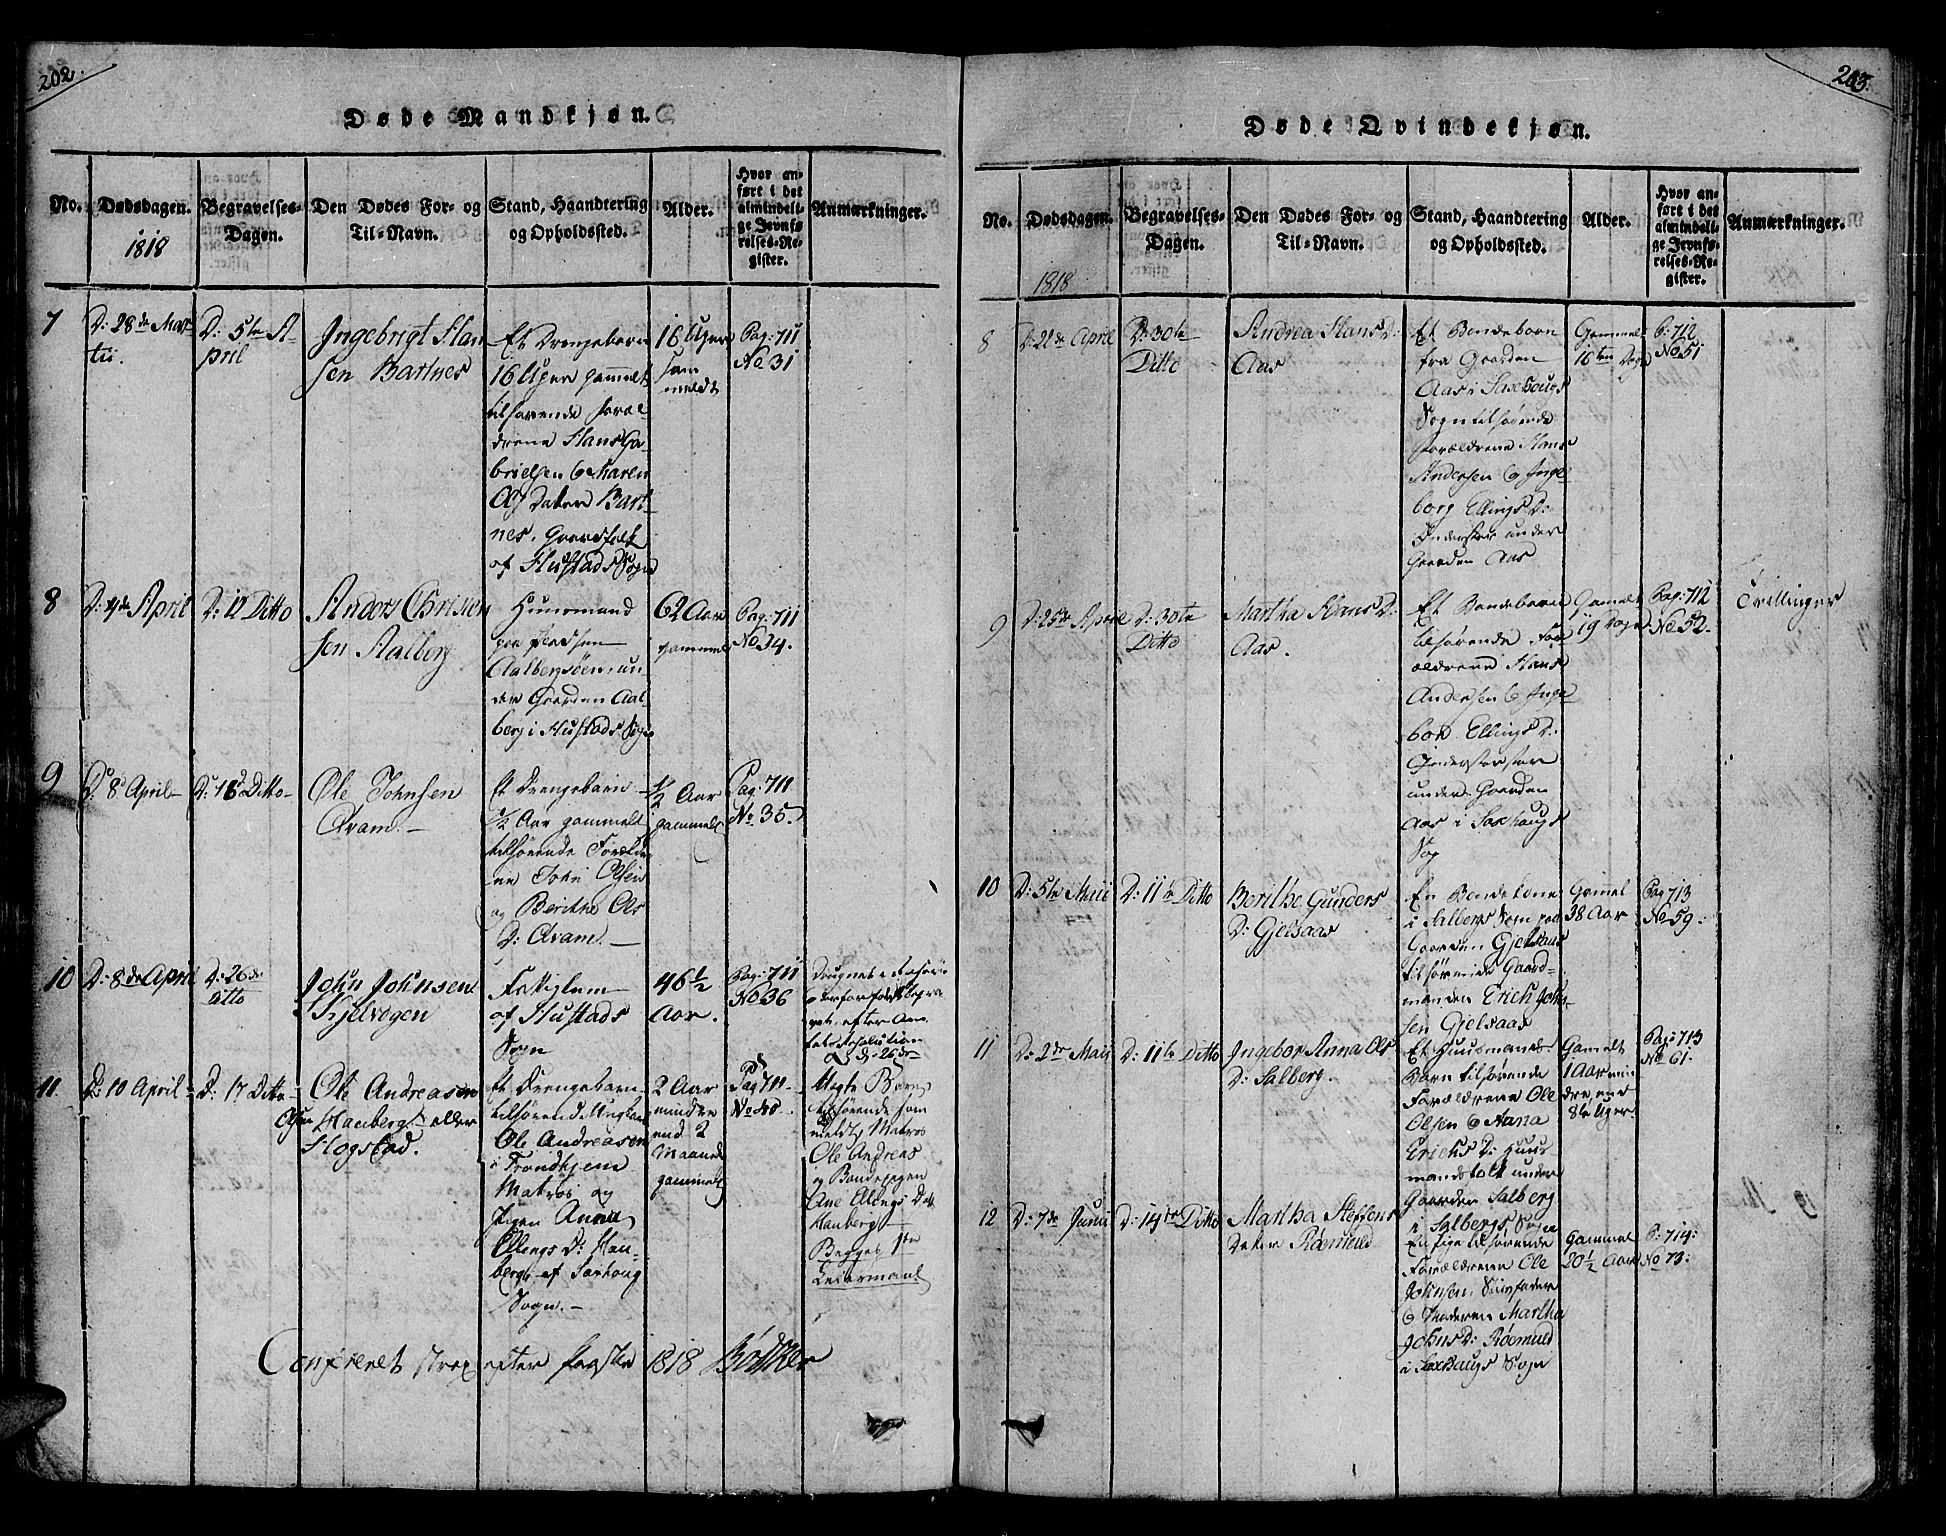 202.
Døde Mandkjøn.
No.
Dødsdagen.
1818
Begravelses-
Dagen.
Den Dødes For- og
Til-Navn.
Stand, Haandtering
og Opholdssted.
Alder.
Hvor an-
ført i det
almindeli-
ge Jevnfø-
relses-Re-
gister.
Anmærkninger.
7
D: 28de Mar-
tii.
D: 5te A-
pril
Ingebrigt Han
sen Bartnes
Et Drengebarn
16 Uger gammel
tilhørende foræl-
drene Hans Ga-
brielsen & Maren
Ols Dater Bart-
nes, Gaardsfolk
af Hustads Sogn
16 Uger
som
meldt
Pag: 711
No 31
8
D: 4de April
D: 12 Ditto
Anders Christen
sen Aalberg
Huusmand
paa pladsen
Aalbergsøen, un-
der Gaarden Aal-
berg i Hustads Sogn
62 Aar
gammel
Pag: 711
No 34.
9
D: 8 April-
D: 18 Ditto-
Ole Johnsen
Qvam.-
Et Drengebarn-
1/2 Aar gammelt
tilhørende Foreldre
ne John Olsen
og Berithe Ols
D: Qvam.-
1/2 Aar
gammelt
Pag: 711
No 35.
10
D: 8de April
D: 26de
Ditto
John Johnsen
Kjelvogen
Fattiglem
af Hustads
Sogn
46 1/2
Aar.
Pag: 711
No 36
efter Am
ts Resolution
d: 26de
11
D: 10 April-
D: 17 Ditto-
Ole Andreasen
Olsen Hauberg- eller
Hogstad.
Et Drengebarn
tilhørende Ungkarl
Ole Andreasen
i Trondhjem
Matros og
Pigen Anna
Ellings D: Hau-
berg- af Saxhoug
Sogn.-
2 Aar
mindre
end 2
Maaned
gammelt
Pag 711-
No 40
Uægte Barn
tilhørende som
meldt Matros
Ole Andreas
og Bondepigen
Ane Elings D:
Hauberg-
Begges 1te
Leiermaal
Confereret strax efter Paaske 1818 Bödtker
203.
Døde Qvindekjøn.
No.
Dødsdagen.
1818
Begravelses-
Dagen.
Den Dødes For- og
Til-Navn.
Stand, Haandtering
og Opholdssted.
Alder.
Hvor an-
ført i det
almindeli-
ge Jevnfø-
relses-Re-
gister.
Anmærkninger.
8
D: 21de April
D: 30te
Ditto
Andrea Hans D:
Aas
Et Bondebarn
fra Gaarden
Aas i Saxhougs
Sogn tilhørende
forældrene Hans
Andersen & Inge
borg Ellings D:
Inderster under
Gaarden Aas
Gammel
16ten Dage
P: 712
No 51
9
D: 25de April
D: 30te
Ditto
Martha Hans D:
Aas.
Et Bondebarn
tilhørende For
ældrene Hans
Andersen & Inge
bor Ellings D:
Inderster
under Gaarden
Aas i Saxhaugs
Sog
Gamelt
19 Dage
Pag: 712
No 52-
Tvillinger
10
D: 5te Maii
D: 11te Ditto
Berithe Gunders
D: Gjelsaas
En Bondekone
i Salbergs Sogn paa
Gaarden Gjelsaas
tilhørende Gaard-
manden Erich John-
sen Gjelsaas
Gamel
38 Aar
Pag 713
No 59:
11
D: 2de Maii
D: 11te Ditto
Ingebor Anna Ols
D: Salberg.
Et Huusmands-
Barn tilhørende
Forældrene Ole
Olsen & Anna
Erichs D: Huus-
mandsfolk under
Gaarden Salberg
i Salbergs Sogn
Gamelt
1 Aar min-
dre, end
8te Uger.
Pag: 713
No 61-
12
D: 7de Junii
D: 14te Ditto
Martha Steffens
Dater Rosmuld
En Pige tilhørende
Forældrene Ole
Johnsen, Stivfader
& Moderen Martha
Johns D: Røsmuld
i Saxhaugs Sogn
Gammel
20 1/2 Aar
P: 714:
No 73: